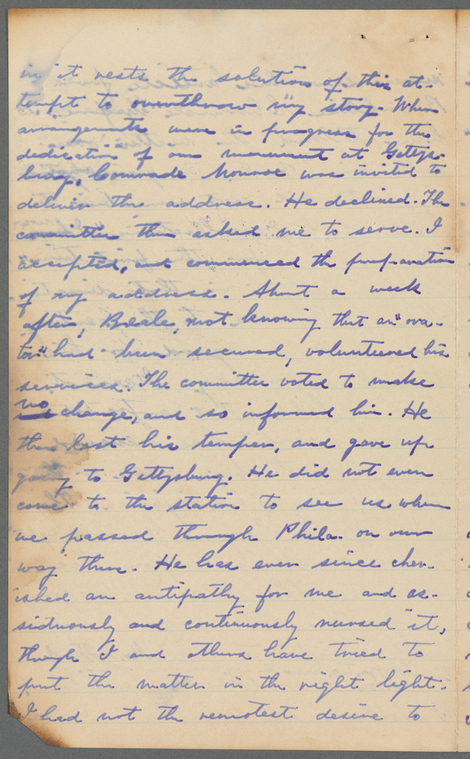 in it rests the solution of this at-
tempt to overthrow my story. When
arrangements were in progress for the
dedication of our monument at Gettys-
burg, Comrade Monroe was invited to
deliver the address. He declined. The
committee then asked me to serve. I
accepted, and commenced the preparation
of my address. About a week
after, Beale, not knowing that an "ora-
tor" had been secured, volunteered his
services. The committee voted to make
no change, and so informed him. He
then lost his temper, and gave up
going to Gettysburg. He did not even
come to the station to see us when
we passed through Phila. on our
way there. He has ever since cher-
ished an antipathy for me and as-
siduously and continuously nursed it,
though I and others have tried to
put the matter in the right light.
I had not the remotest desire to